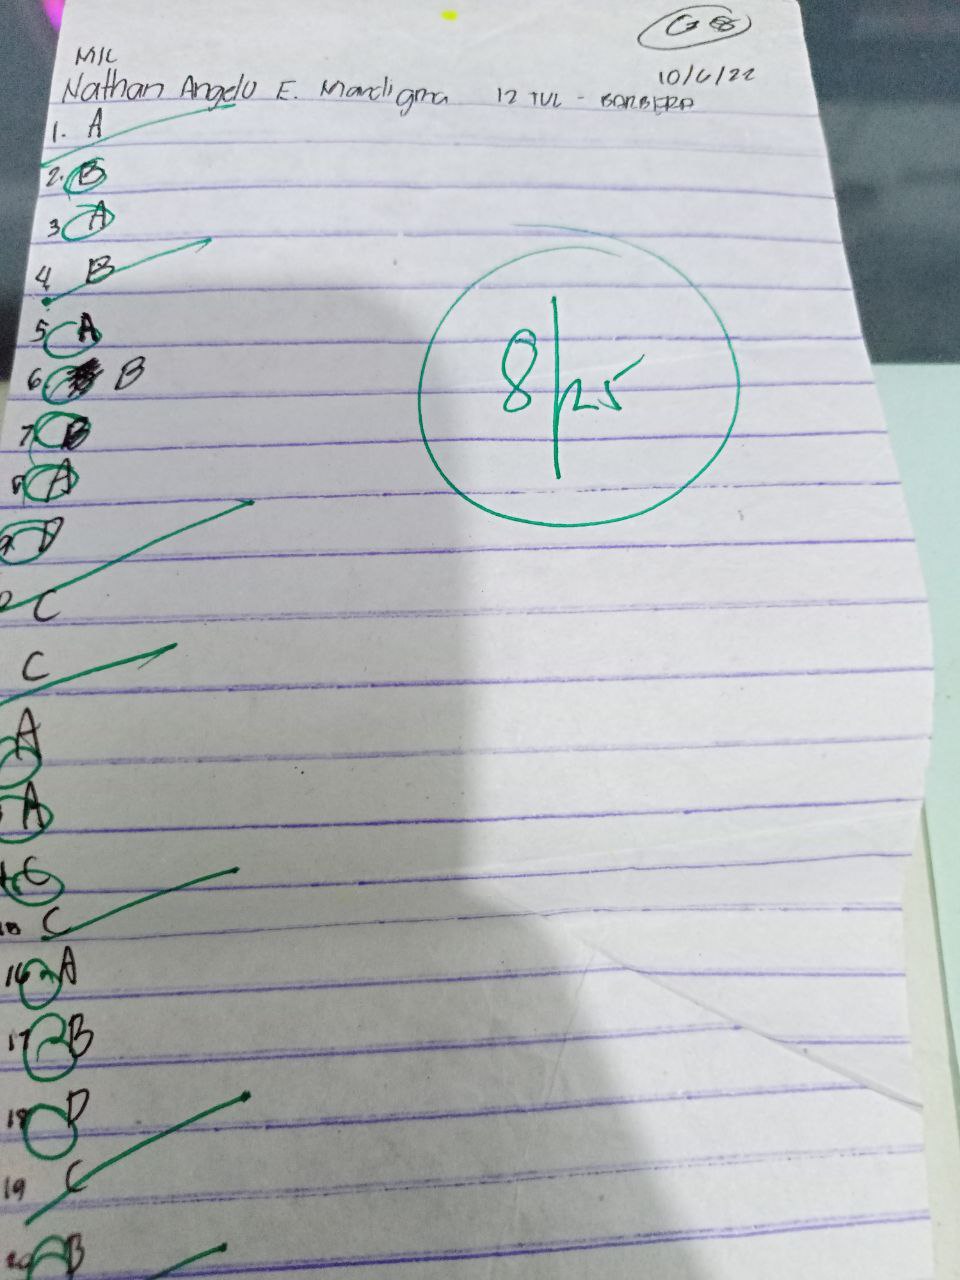 G8
MIL
10/6/22
Nathan Angelo E. Mandigma 12 TVL - BARBERA
1. A
2. B
3 A
4 B
5 A
6 B
7 B
8 A
9 D
C
C
A
A
C
C
16 A
17 B
18 D
19 C
20 B
8/25